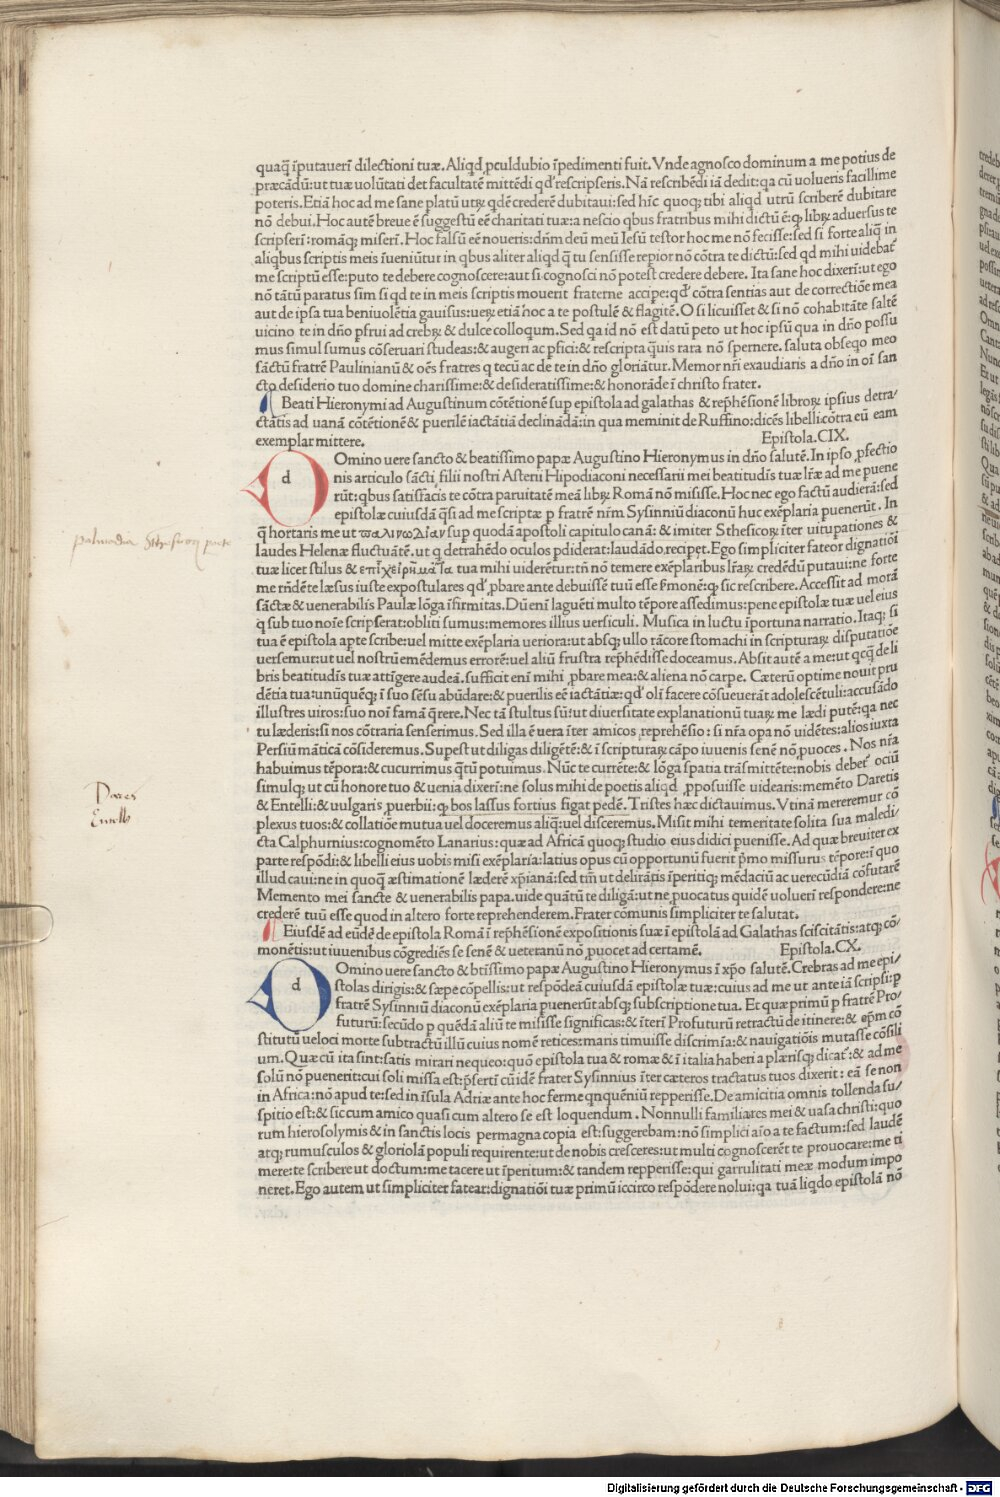 quaq̃ ĩputauerĩ dilectioni tuæ. Aliqd ꝓculdubio ĩpedimenti fuit. Vnde agnosco dominum a me potius de
præcãdũ: ut tuæ uolũtati det facultatẽ mittẽdi qd' rescripseris. Nã rescribẽdi iã dedit: qa cũ uolueris facillime
poteris. Etiã hoc ad me sane platũ utꝝ qdẽ crederẽ dubitaui: sed hĩc quoq; tibi aliqd utrũ scriberẽ dubitare
nõ debui. Hoc autẽ breue ẽ suggestũ eẽ charitati tuæ: a nescio qbus fratribus mihi dictũ ẽ: ꝙ libꝝ aduersus te
scripserĩ: romãq; miserĩ. Hoc falsũ eẽ noueris: dñm deũ meũ Iesũ testor hoc me nõ fecisse: sed si forte aliq̃ in
aliqbus scriptis meis ĩueniũtur in qbus aliter aliqd q̃ tu sensisse repior nõ cõtra te dictũ: sed qd mihi uidebat'
me scriptũ esse: puto te debere cognoscere: aut si cognosci nõ potest credere debere. Ita sane hoc dixerĩ: ut ego
nõ tãtũ paratus sim si qd te in meis scriptis mouerit fraterne accipe: qd' cõtra sentias aut de correctiõe mea
aut de ipsa tua beniuolẽtia gauisus: ueꝝ etiã hoc a te postulẽ & flagitẽ. O si licuisset & si nõ cohabitãte saltẽ
uicino te in dño ꝑfrui ad crebꝝ & dulce colloqum. Sed qa id nõ est datũ peto ut hoc ipsũ qua in dño possu
mus simul sumus cõseruari studeas: & augeri ac ꝑfici: & rescripta q̃uis rara nõ spernere. saluta obseqo meo
sãctũ fratrẽ Paulinianũ & oẽs fratres q tecũ ac de te in dño gloriãtur. Memor nr̃i exaudiaris a dño in oĩ san
cto desiderio tuo domine charissime: & desideratissime: & honorãde ĩ christo frater.
Beati Hieronymi ad Augustinum cõtẽtionẽ sup epistola ad galathas & rep̃hẽsionẽ libroꝝ ipsius detra/
ctãtis ad uanã cõtẽtionẽ & puerilẽ iactãtiã declinãdã: in qua meminit de Ruffino: dicẽs libelli cõtra eũ eam
exemplar mittere. Epistola. CIX.
d Omino uere sancto & beatissimo papæ Augustino Hieronymus in dño salutẽ. In ipso ꝓfectio
nis articulo sãcti filii nostri Asterii Hipodiaconi necessarii mei beatitudĩs tuæ lr̃æ ad me puene
rũt: qbus satisfacis te cõtra paruitatẽ meã libꝝ Romã nõ misisse. Hoc nec ego factũ audierã: sed
epistolæ cuiusdã q̃si ad me scriptæ p fratrẽ nr̃m Sysinniũ diaconũ huc exẽplaria puenerũt. In
q̃ hortaris me ut παλινοδίαν sup quodã apostoli capitulo canã: & imiter Sthesicoꝝ iter uitupationes &
laudes Helenæ fluctuãtẽ. ut q detrahẽdo oculos pdiderat: laudãdo recipet. Ego simpliciter fateor dignatiõi
tuæ licet stilus & επιχειρήματα tua mihi uiderẽtur: tñ nõ temere exẽplaribus lr̃aꝝ credẽdũ putaui: ne forte
me rñdẽte læsus iuste expostulares qd' ꝓbare ante debuissẽ tuũ esse ẜmonẽ: ꝙ sic rescribere. Accessit ad morã
sãctæ & uenerabilis Paulæ lõga ĩfirmitas. Dũ enĩ laguẽti multo tẽpore assedimus: pene epistolæ tuæ uel eius
q sub tuo noĩe scripserat: obliti sumus: memores illius uersiculi. Musica in luctu ĩportuna narratio. Itaq; si
tua ẽ epistola apte scribe: uel mitte exẽplaria ueriora: ut absq; ullo rãcore stomachi in scripturaꝝ disputatiõe
uersemur: ut uel nostrũ emẽdemus errorẽ: uel aliũ frustra rep̃hẽdisse doceamus. Absit autẽ a me: ut qcq̃ de li
bris beatitudĩs tuæ attĩgere audeã. sufficit enĩ mihi ꝓbare mea: & aliena nõ carpe. Cæterũ optime nouit pru
dẽtia tua: unũquẽq; ĩ suo sẽsu abũdare: & puerilis eẽ iactãtiæ: qd' olĩ facere cõsueuerãt adolescẽtuli: accusãdo
illustres uiros: suo noĩ famã q̃rere. Nec tã stultus sũ: ut diuersitate explanationũ tuaꝝ me lædi putẽ: qa nec
tu læderis: si nos cõtraria senserimus. Sed illa ẽ uera ĩter amicos reprehẽsio: si nr̃a opa nõ uidẽtes: alios iuxta
Persiũ mãticã cõsideremus. Supest ut diligas diligẽtẽ: & ĩ scripturaꝝ cãpo iuuenis senẽ nõ ꝓuoces. Nos nr̃a
habuimus tẽpora: & cucurrimus q̃tũ potuimus. Nũc te currẽte: & lõga spatia trãsmittẽte: nobis debet' ociũ
simulq; ut cũ honore tuo & uenia dixerĩ: ne solus mihi de poetis aliqd ꝓposuisse uidearis: memẽto Daretis
& Entelli: & uulgaris ꝓuerbii: ꝙ bos lassus fortius figat pedẽ. Tristes hæc dictauimus. Vtinã mereremur cõ
plexus tuos: & collatiõe mutua uel doceremus aliq̃: uel disceremus. Misit mihi temeritate solita sua maledi/
cta Calphurnius: cognomẽto Lanarius: quæ ad Africã quoq; studio eius didici puenisse. Ad quæ breuiter ex
parte respõdi: & libelli eius uobis misi exẽplaria: latius opus cũ opportunũ fuerit pr̃mo missurus tẽpore: ĩ quo
illud caui: ne in quoq̃ æstimationẽ læderẽ xp̃ianã: sed tm̃ ut delirãtis ĩperitiq; mẽdaciũ ac uerecũdiã cõfutarẽ
Memento mei sancte & uenerabilis papa. uide quãtũ te diligã: ut ne ꝓuocatus quidẽ uoluerĩ respondere: ne
crederẽ tuũ esse quod in altero forte reprehenderem. Frater cõmunis simpliciter te salutat.
Eiusdẽ ad eũdẽ de epistola Romã ĩ rep̃hẽsionẽ expositionis suæ ĩ epistolã ad Galathas sciscitãtis: atq; cõ/
monẽtis: ut iuuenibus cõgrediẽs se senẽ & ueteranũ nõ ꝓuocet ad certamẽ. Epistola. CX.
d Omino uere sancto & btĩssimo papæ Augustino Hieronymus ĩ xp̃o salutẽ. Crebras ad me epi/
stolas dirigis: & sæpe cõpellis: ut respõdeã cuiusdã epistolæ tuæ: cuius ad me ut ante iã scripsi: p
fratrẽ Sysinniũ diaconũ exẽplaria puenerũt absq; subscriptione tua. Et quæ primũ p fratrẽ Pro/
futurũ: secũdo p quẽdã aliũ te misisse significas: & ĩterĩ Profuturũ retractũ de itinere: & epm̃ cõ
stitutũ ueloci morte subtractũ illũ cuius nomẽ retices: maris timuisse discrimĩa: & nauigatiõis mutasse cõsili
um. Quæ cũ ita sint: satis mirari nequeo: quõ epistola tua & romæ & ĩ italia haberi a plærisq; dicat': & ad me
solũ nõ puenerit: cui soli missa est: p̃sertĩ cũ idẽ frater Sysinnius ĩter cæteros tractatus tuos dixerit: eã se non
in Africa: nõ apud te: sed in ĩsula Adriæ ante hoc ferme qnquẽniũ repperisse. De amicitia omnis tollenda su/
spitio est: & sic cum amico quasi cum altero se est loquendum. Nonnulli familiares mei & uasa christi: quo
rum hierosolymis & in sanctis locis permagna copia est: suggerebam: nõ simplici aĩo a te factum: sed laudẽ
atq; rumusculos & gloriolã populi requirente: ut de nobis cresceres: ut multi cognoscerẽt te prouocare: me ti
mere: te scribere ut doctum: me tacere ut ĩperitum: & tandem repperisse: qui garrulitati meæ modum impo
neret. Ego autem ut simpliciter fatear: dignatiõi tuæ primũ iccirco respõdere nolui: qa tuã liqdo epistolã nõ
palinodia Sthesicorj poete
Dares
Entell9
Digitalisierung gefördert durch die Deutsche Forschungsgemeinschaft - DFG